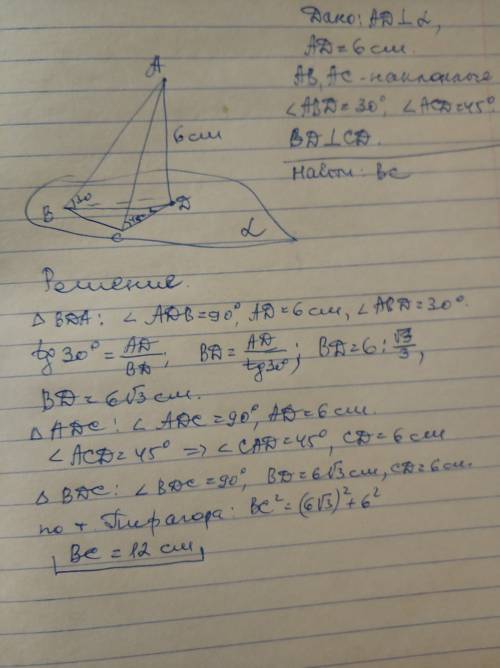 Дано: AD⊥α,
AD=6см.
AB, AC - наклонные
∠ABD=30°, ∠ACD=45°.
BD⊥CD.
Найти: BC
A
6см
B
30
45
D
C
α
Решение.
△BDA: ∠ADB=90°, AD=6см, ∠ABD=30°.
tg30°=AD/BD; BD=AD/tg30°; BD=6:√3/3;
BD=6√3см.
△ADC: ∠ADC=90°, AD=6см.
∠ACD=45° => ∠CAD=45°, CD=6см
△BDC: ∠BDC=90°, BD=6√3см, CD=6см.
по т Пифагора: BC²=(6√3)²+6²
BC=12см,